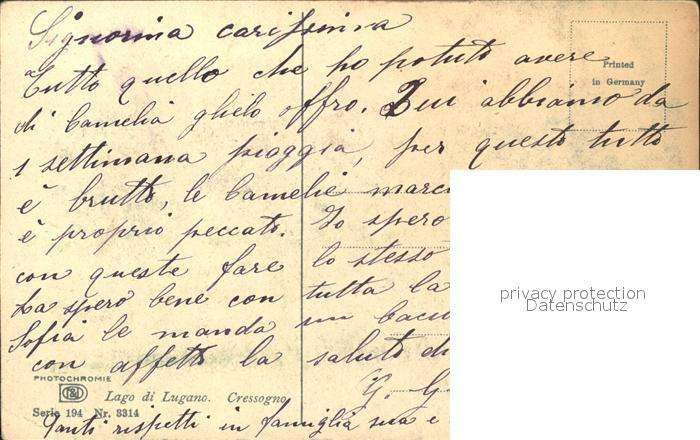 Signorina carissima
Tutto quello che ho potuto avere
di Camelia glielo offro. Qui abbiamo da
1 settimana pioggia, per questo tutto
è brutto, le Camelie marc
è proprio peccato. Io spero
con queste fare lo stesso
La spero bene con tutta la
Sofia le manda un baci
con affetto la saluto di
G. G
Tanti rispetti in famiglia sua e
Printed
in Germany
privacy protection
Datenschutz
PHOTOCHROMIE
Lago di Lugano. Cressogno
Serie 194 Nr. 3314